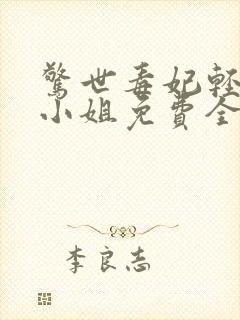 驚世毒妃輕
小姐免費全
李良志